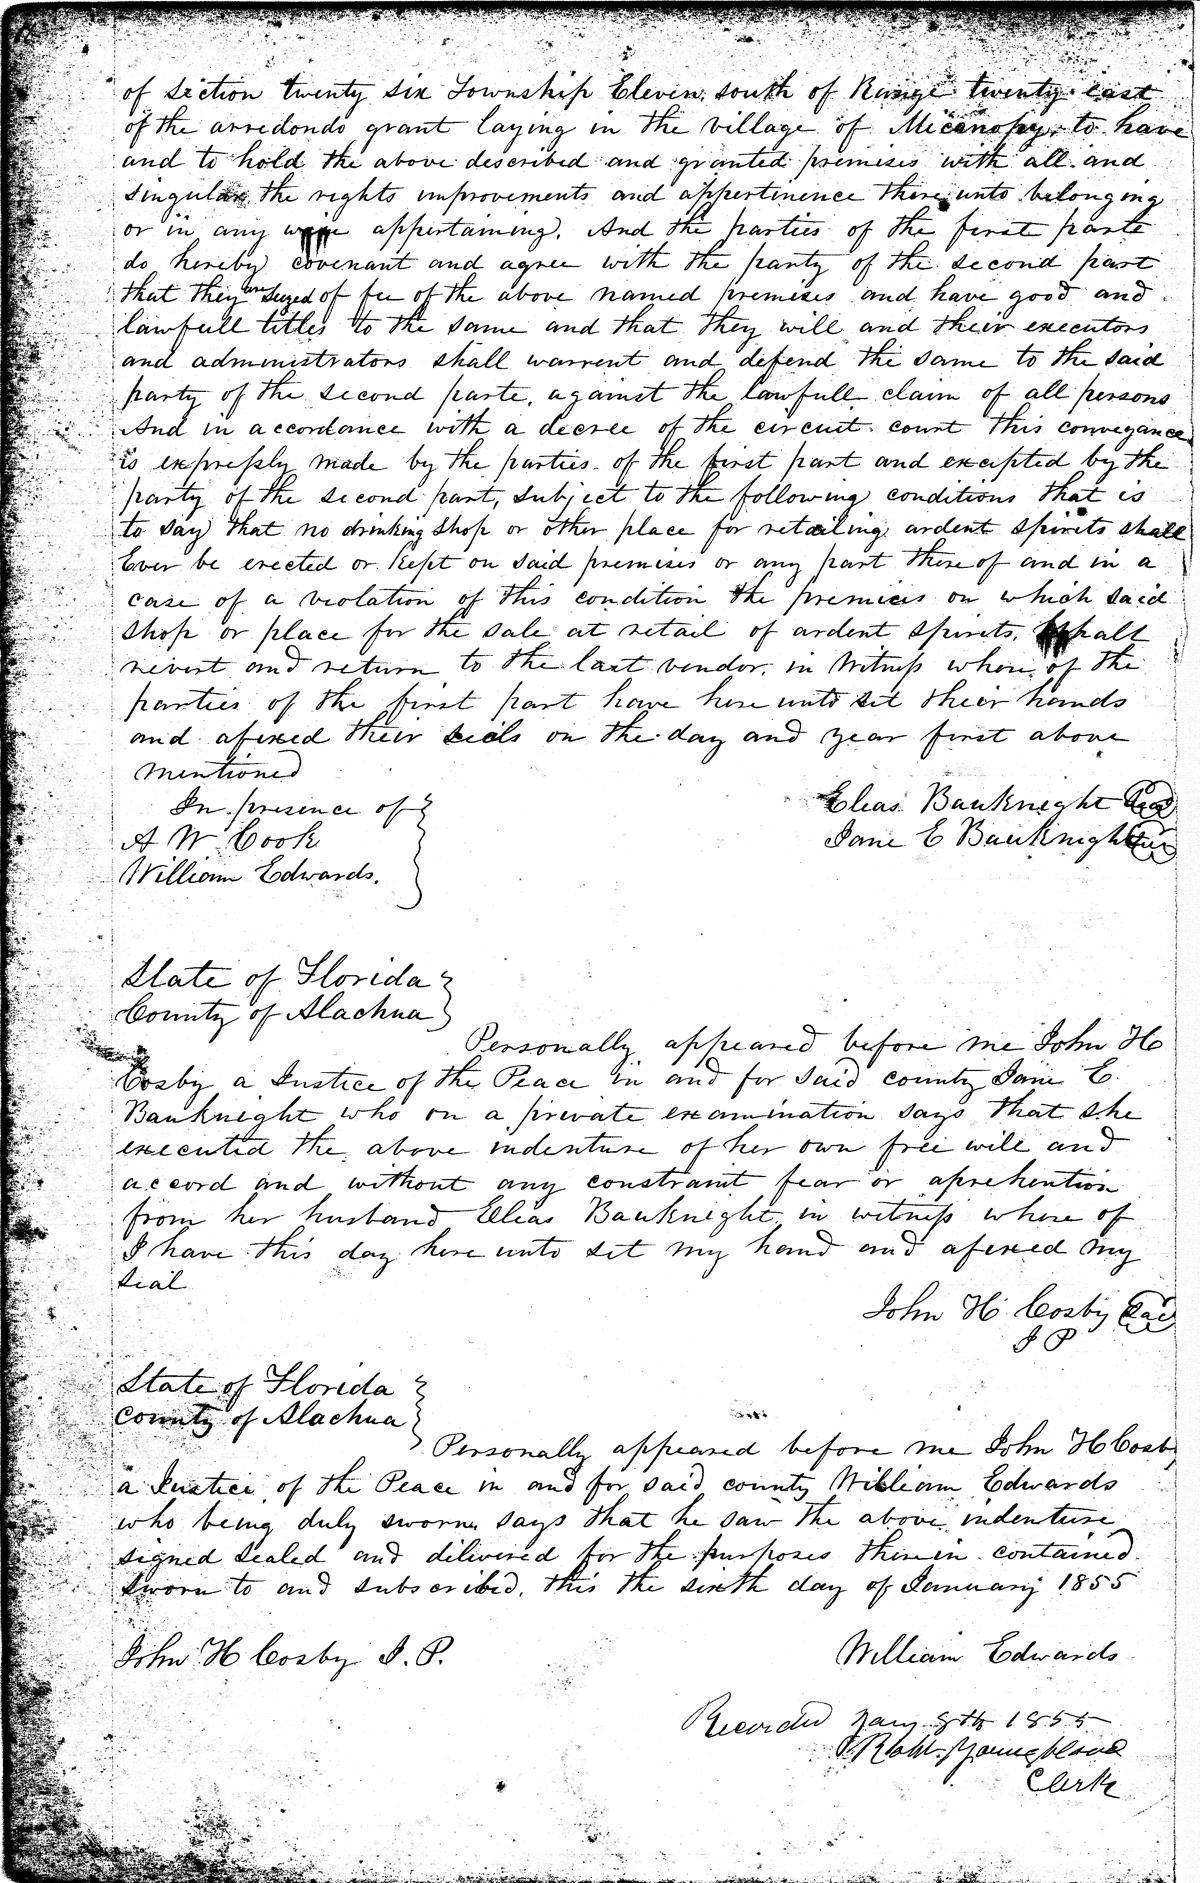 of section twenty six Township Eleven south of Range twenty east
of the arredondo grant laying in the village of Micanopy, to have
and to hold the above described and granted premises with all and
singular the rights improvements and appertinence there unto belonging
or in any wise appertaining. And the parties of the first parte
do hereby covenant and agree with the party of the second part
that they are seized of fee of the above named premises and have good and
lawfull titles to the same and that they will and their executors
and administrators shall warrent and defend the same to the said
party of the second parte, against the lawfull claim of all persons
And in accordance with a decree of the circuit court this conveyance
is expressly made by the parties of the first part and excepted by the
party of the second part, subject to the following conditions that is
to say that no drinking shop or other place for retailing ardent spirits shall
Ever be erected or Kept on said premises or any part there of and in a
case of a violation of this condition the premises on which said
shop or place for the sale at retail of ardent spirits, shall
revert and return to the last vendor. in Witness where of the
parties of the first part have here unto set their hands
and afixed their seals on the day and year first above
mentioned
In presence of
A W Cook
William Edwards.
Elias Bauknight Seal
Jane E Bauknight Seal
State of Florida
County of Alachua
Personally appeared before me John H
Cosby a Justice of the Peace in and for said county Jane E.
Bauknight who on a private examination says that she
executed the above indenture of her own free will and
accord and without any constraint fear or aprehention
from her husband Elias Bauknight in witness where of
I have this day here unto set my hand and afixed my
seal
John H Cosby Seal
J P
State of Florida
County of Alachua
Personally appeared before me John H Cosby
a Justice of the Peace in and for said county William Edwards
who being duly sworn says that he saw the above indenture
signed sealed and delivered for the purposes therein contained
Sworn to and subscribed, this the sixth day of January 1855
John H Cosby J. P.
William Edwards
Recorded Jany 8th 1855
Robt. Youngblood
Clerk